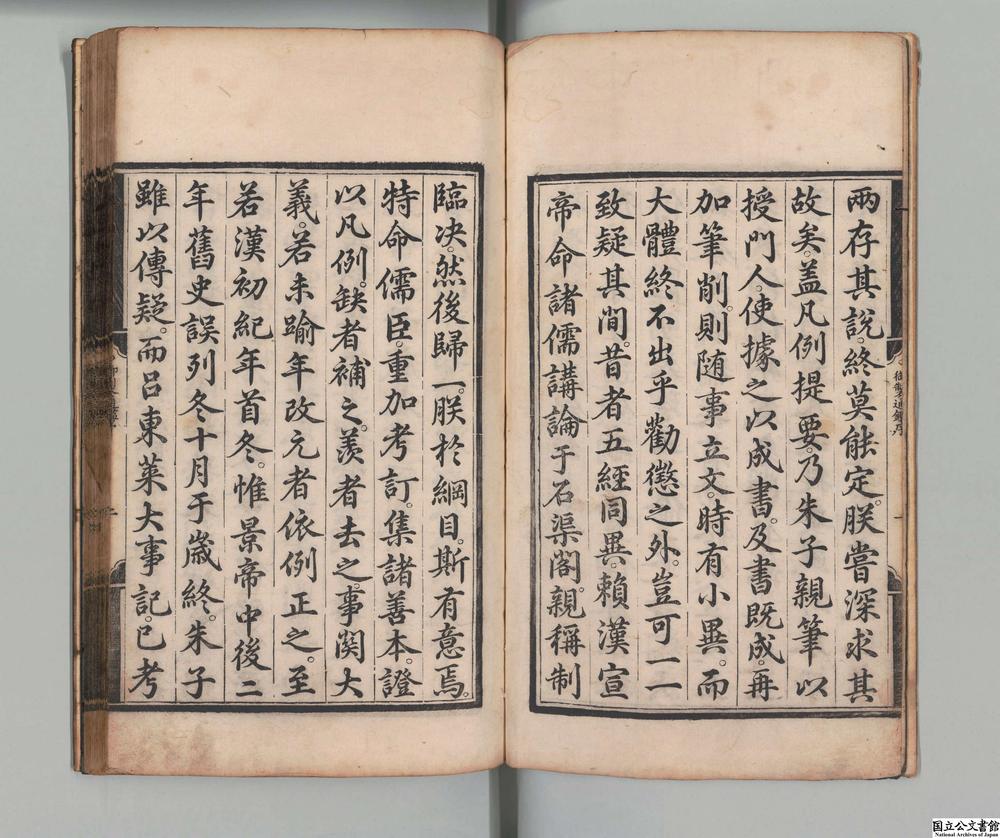 兩存其說。終莫能定。朕嘗深求其
故矣。盖凡例提要。乃朱子親筆以
授門人。使據之以成書。及書既成。再
加筆削。則随事立文。時有小異。而
大體終不出乎勸懲之外。豈可一一
致疑其間。昔者五經同異。賴漢宣
帝命諸儒講論于石渠閣。親稱制
臨决。然後歸一。朕於綱目。斯有意焉。
特命儒臣。重加考訂。集諸善本。證
以凡例。缺者補之。羨者去之。事関大
義。若未踰年改元者依例正之。至
若漢初紀年首冬。惟景帝中後二
年舊史誤列冬十月于歲終。朱子
雖以傳疑。而呂東萊大事記。已考
国立公文書館
National Archives of Japan